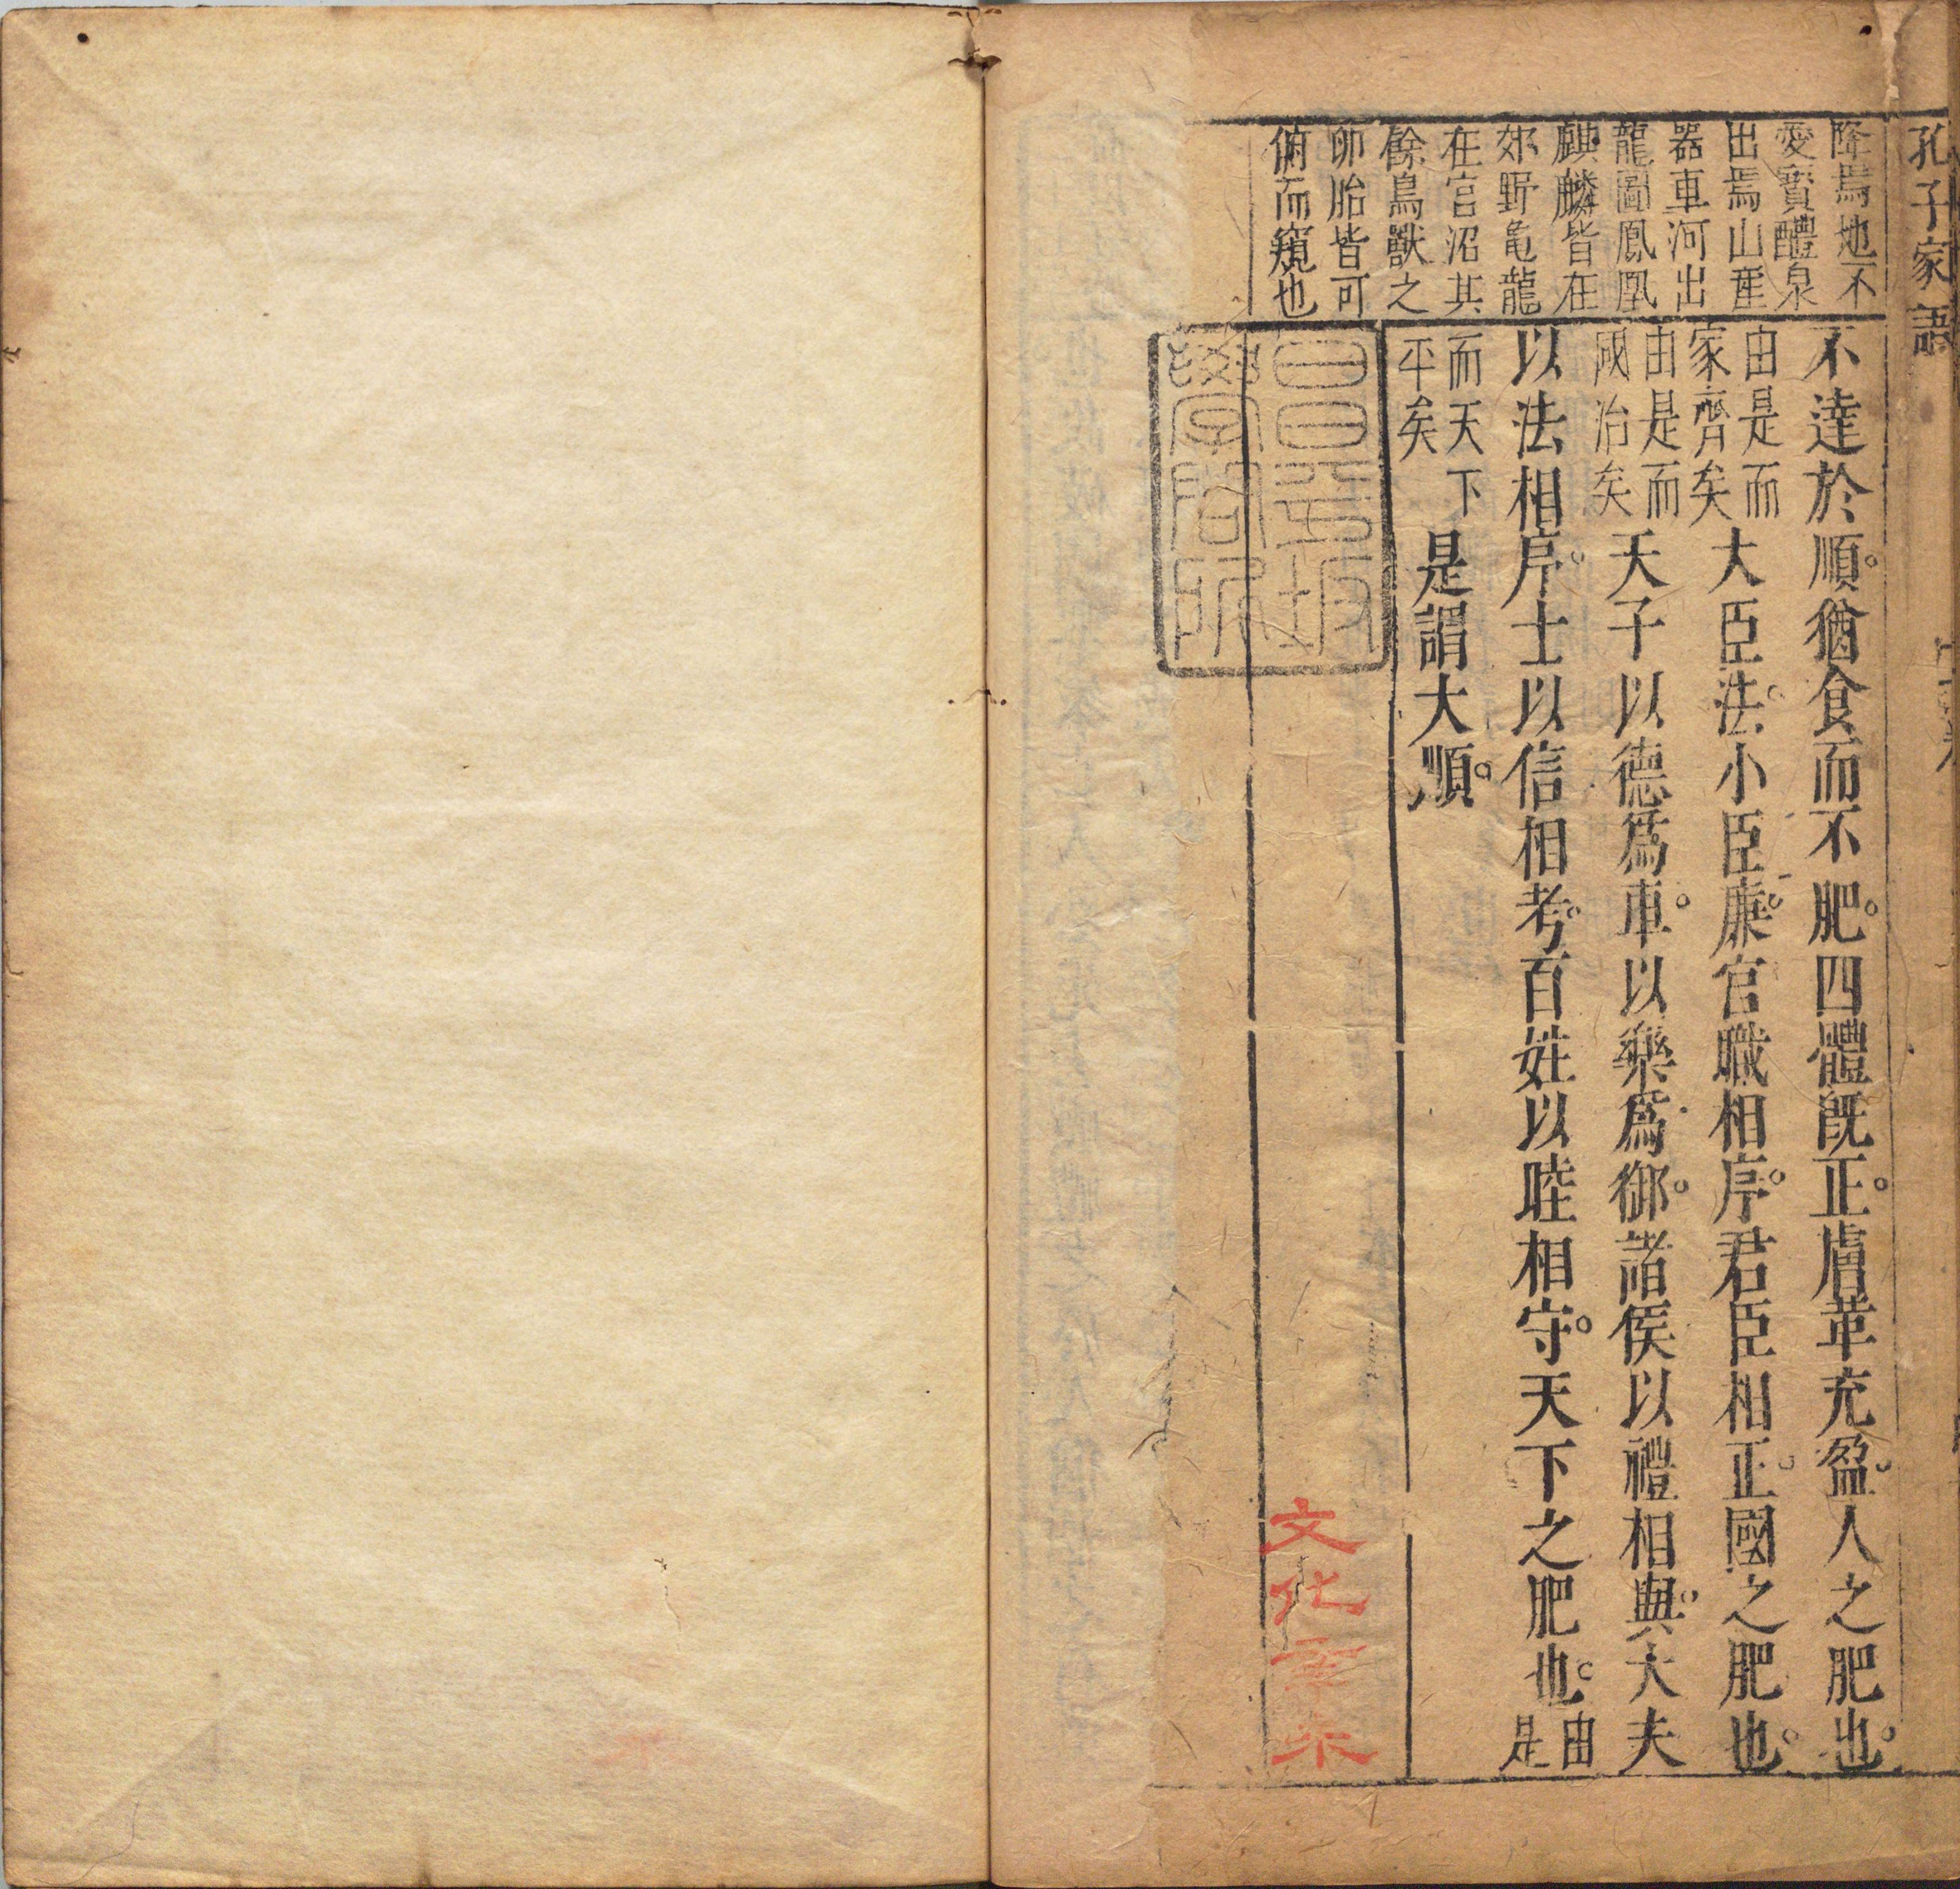 孔子家語
降焉地不
愛寶醴泉
出焉山產
器車河出
龍圖鳳凰
麒麟皆在
郊野龜龍
在宮沼其
餘鳥獸之
卵胎皆可
俯而窺也
不達於順。猶食而不肥。四體既正。膚革充盈。人之肥也。
由是而
家齊矣
大臣法。小臣廉。官職相序。君臣相正。國之肥也。
由是而
國治矣
天子以德爲車。以樂爲御。諸侯以禮相與。大夫
以法相序。士以信相考。百姓以睦相守。天下之肥也。由是
而天下
平矣
是謂大順。
昌平坂
學問所
文化